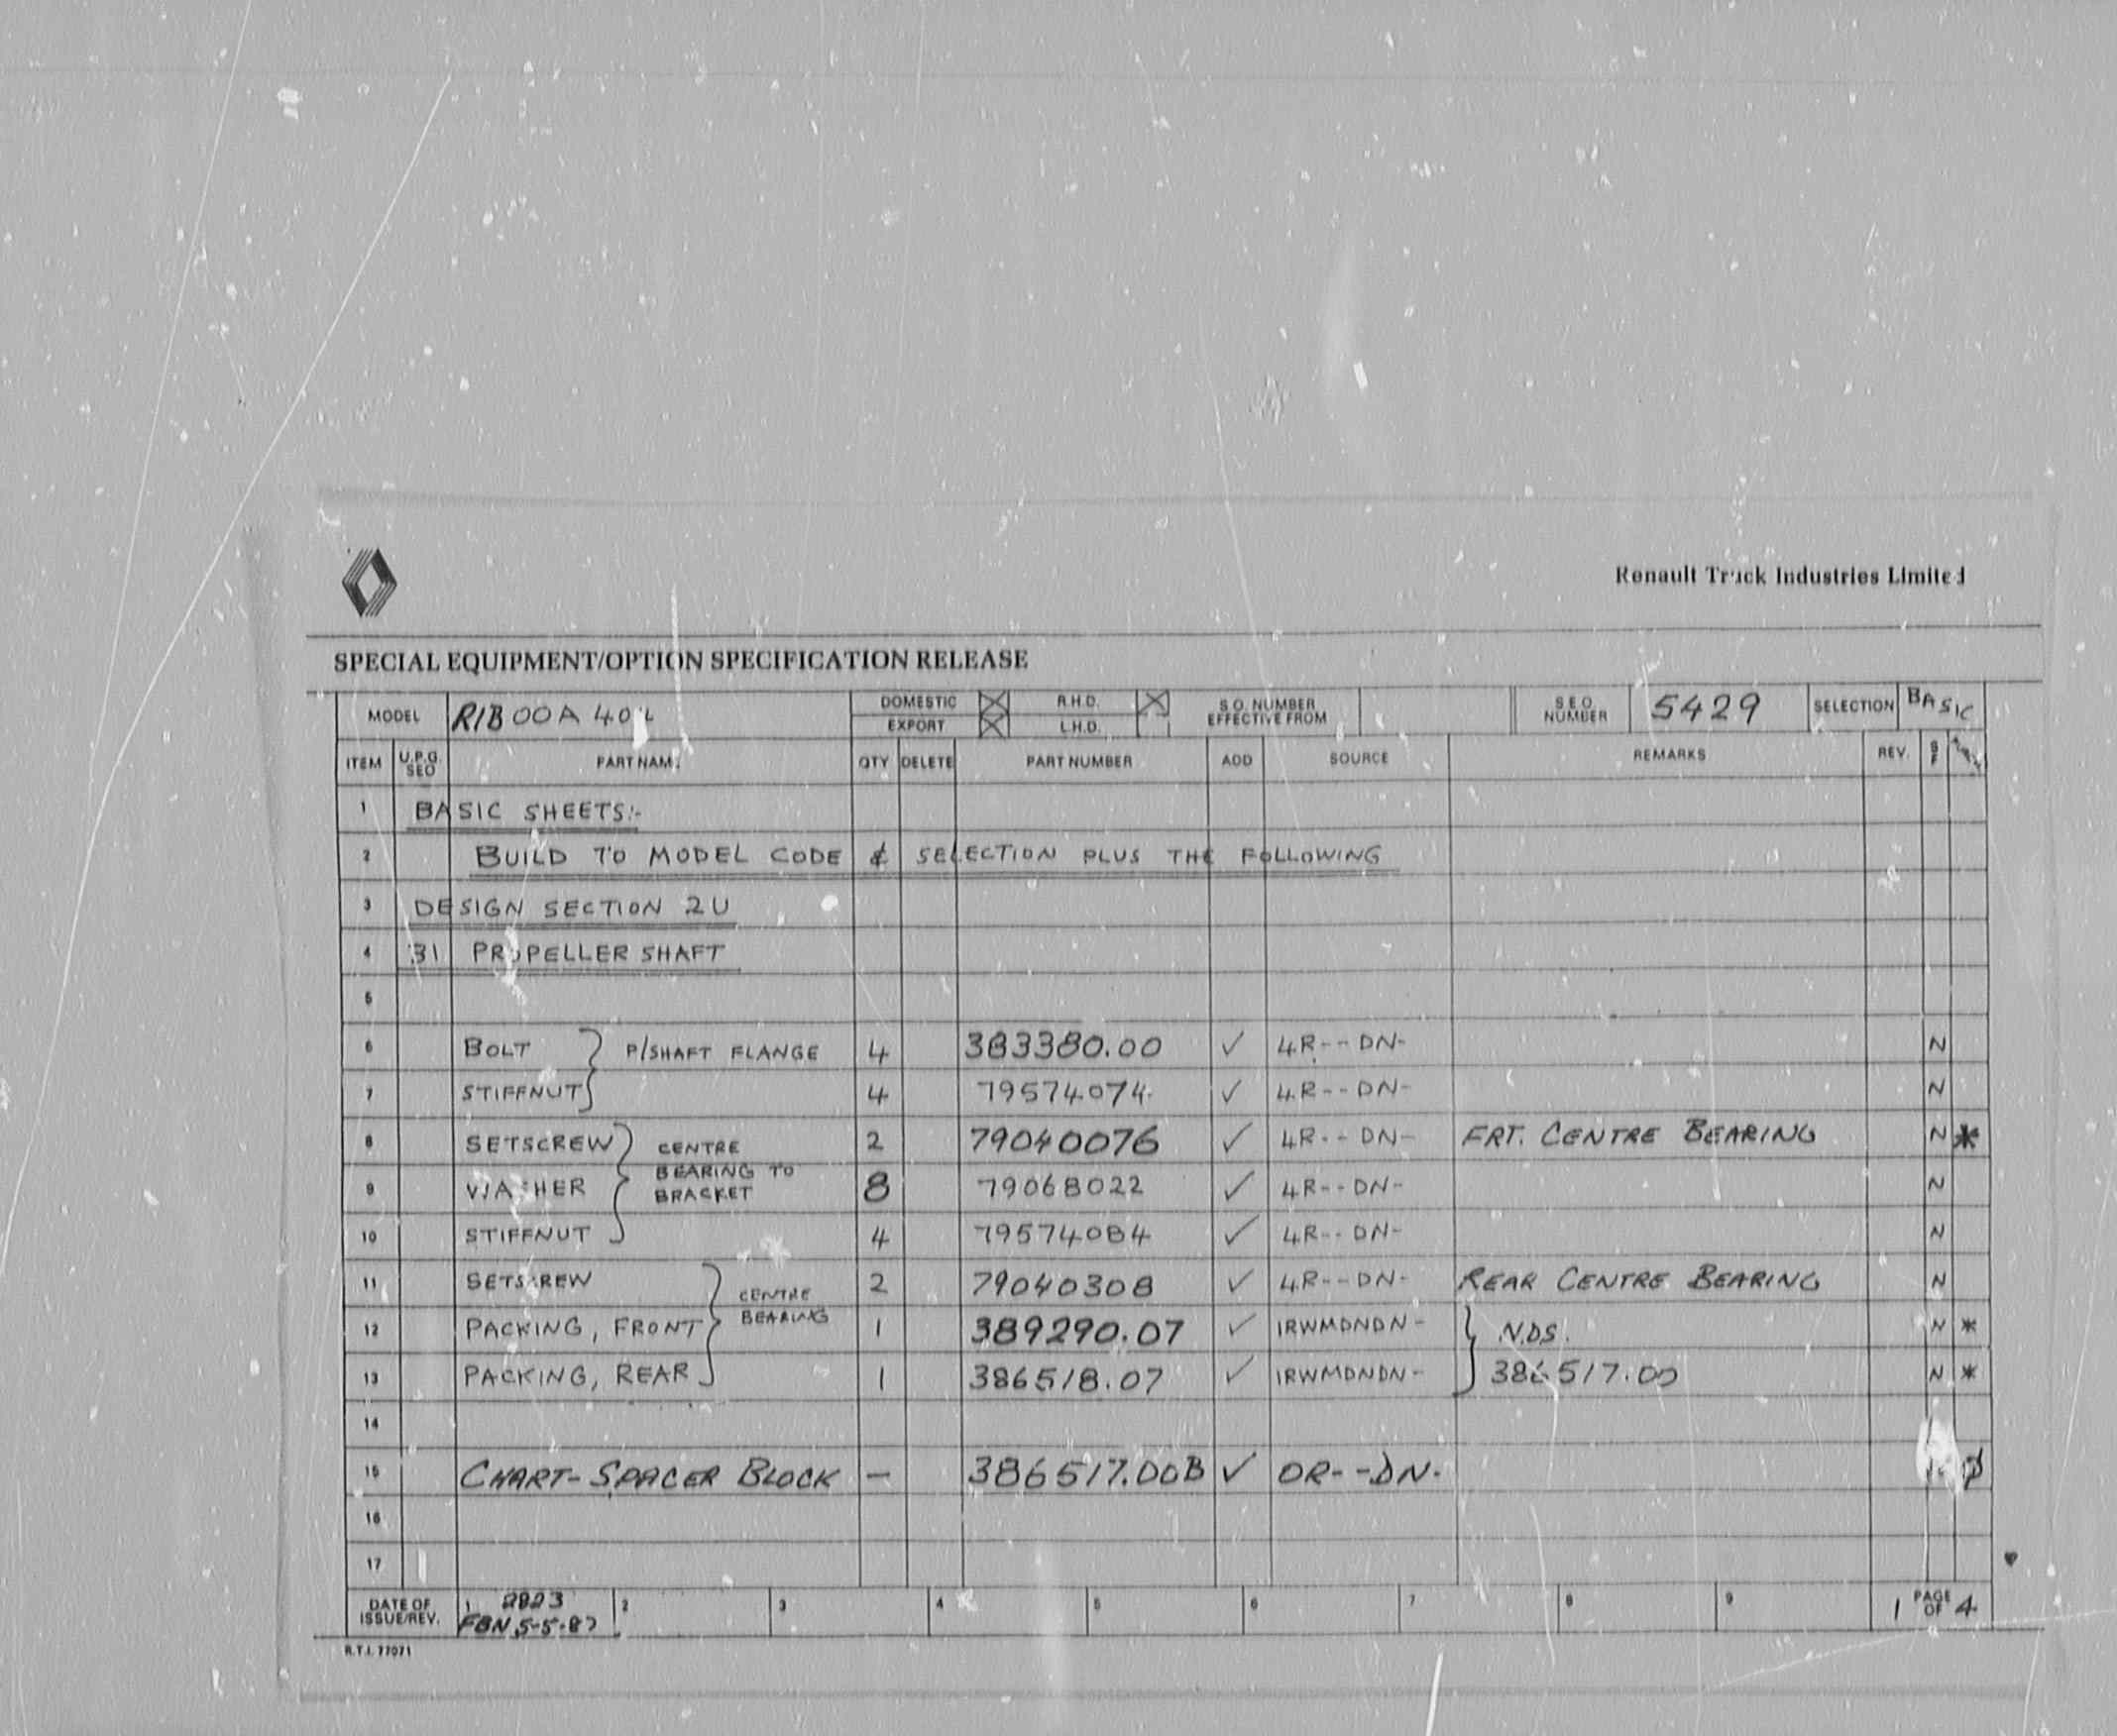 Renault Truck Industries Limited
SPECIAL EQUIPMENT/OPTION SPECIFICATION RELEASE
MODEL R1B00A DOMESTIC R.H.D. S.O. NUMBER EFFECTIVE FROM S.E.O. NUMBER 5429 SELECTION BASIC
EXPORT L.H.D.
ITEM U.P.G. SEO PART NAM QTY DELETE PART NUMBER ADD SOURCE REMARKS REV.
1 BASIC SHEETS:-
2 BUILD TO MODEL CODE & SELECTION PLUS THE FOLLOWING
3 DESIGN SECTION 2U
4 31 PROPELLER SHAFT
5
6 BOLT P/SHAFT FLANGE 4 383380.00 ✓ 4R--DN- N
7 STIFFNUT 4 79574074 ✓ 4R--DN- N
8 SETSCREW CENTRE 2 79040076 ✓ 4R--DN- FRT. CENTRE BEARING N *
9 WASHER BEARING TO BRACKET 8 79068022 ✓ 4R--DN- N
10 STIFFNUT 4 79574084 ✓ 4R--DN- N
11 SETSCREW CENTRE 2 79040308 ✓ 4R--DN- REAR CENTRE BEARING N
12 PACKING, FRONT BEARING 1 389290.07 ✓ 1RWMDNDN- N.D.S. N *
13 PACKING, REAR 1 386518.07 ✓ 1RWMDNDN- 386517.00 N *
14
15 CHART-SPACER BLOCK — 386517.00B ✓ 0R--DN-
16
17
DATE OF ISSUE/REV. 1 2823 2 3 4 5 6 7 8 9 1 PAGE OF 4
FBN 5-5-87
R.T.I. 77071